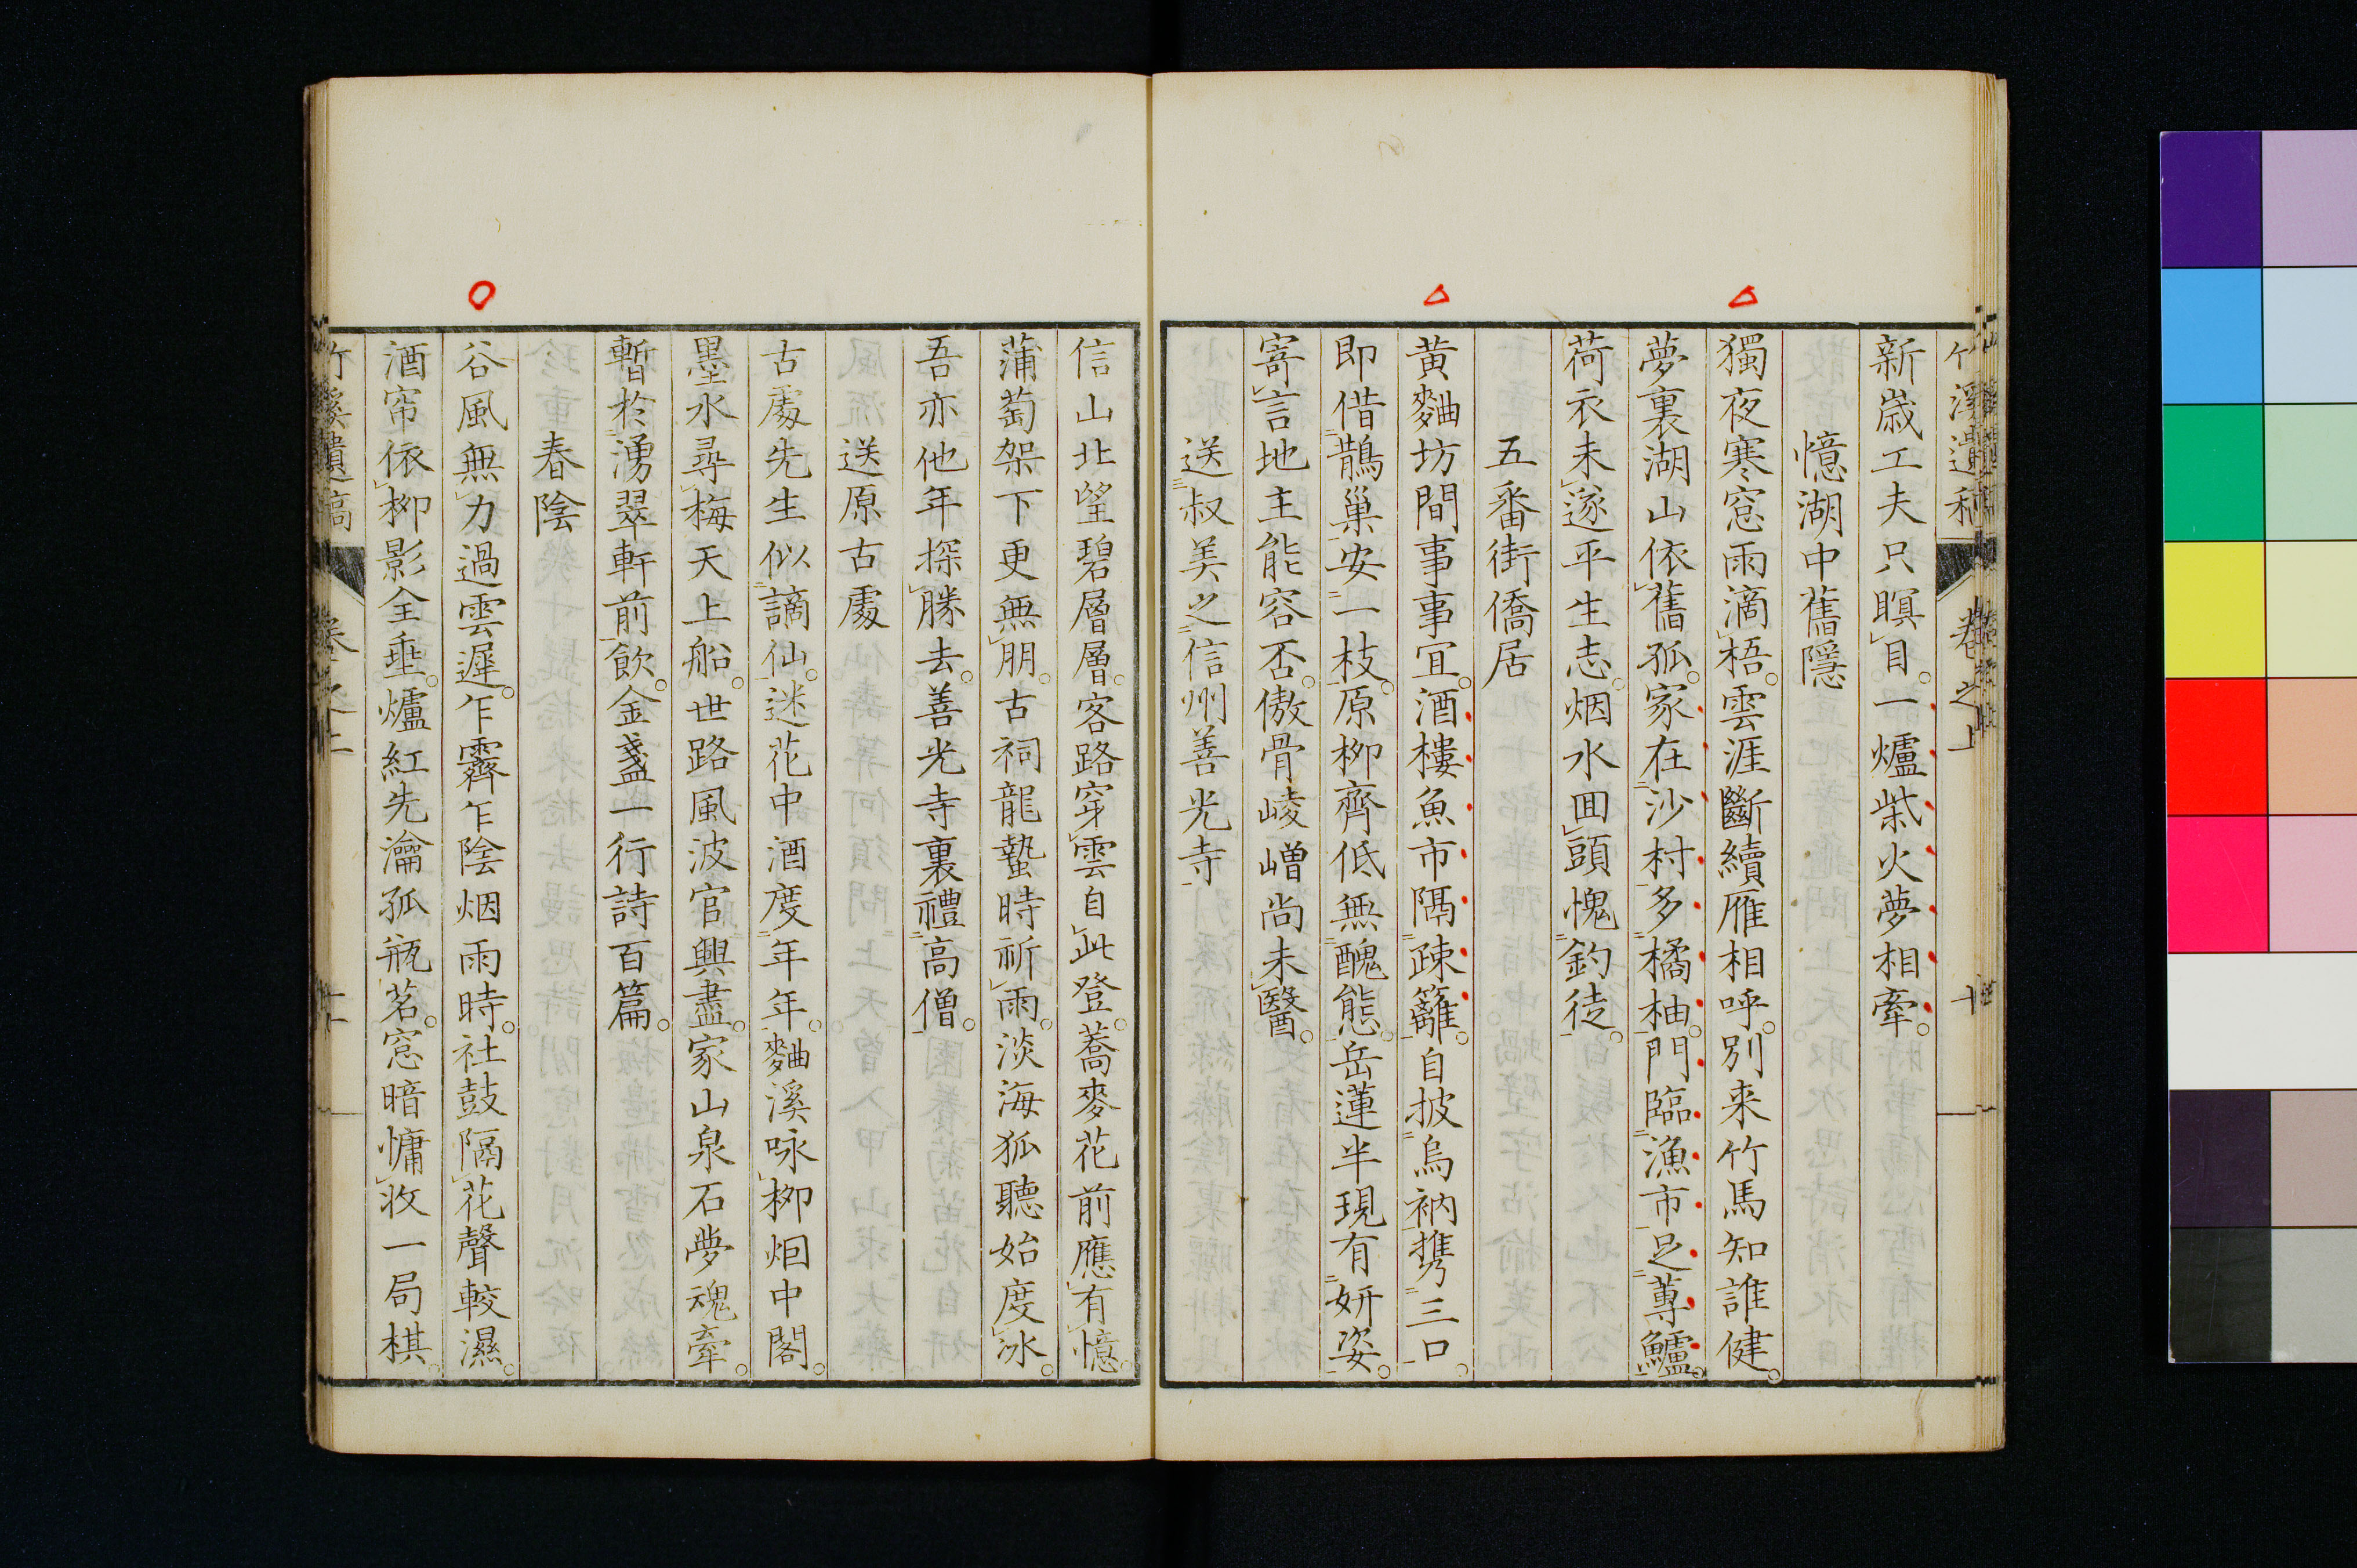 竹溪遺稿 卷之上 十
新歳工夫只瞑目。一爐柴火夢相牽。
憶湖中舊隱
獨夜寒窓雨滴梧。雲涯斷續雁相呼。別来竹馬知誰健。
夢裏湖山依舊孤。家在沙村多橘柚。門臨漁市足蓴鱸。
荷衣未遂平生志。烟水囬頭愧釣徒。
五番街僑居
黄麯坊間事事冝。酒樓魚市隔疎籬。自披烏衲携三口。
即借鵲巢安一枝。原柳齊低無醜態。岳蓮半現有妍姿。
寄言地主能容否。傲骨崚嶒尚未醫。
送叔美之信州善光寺
信山北望碧層層。客路穿雲自此登。蕎麥花前應有憶。
蒲萄架下更無朋。古祠龍蟄時祈雨。淡海狐聽始度冰。
吾亦他年探勝去。善光寺裏禮高僧。
送原古處
古處先生似謫仙。迷花中酒度年年。麯溪咏柳烟中閣。
墨水尋梅天上船。世路風波官興盡。家山泉石夢魂牽。
暫於湧翠軒前飲。金盞一行詩百篇。
春陰
谷風無力過雲遲。乍霽乍陰烟雨時。社鼓隔花聲較濕。
酒帘依柳影全垂。爐紅先瀹孤瓶茗。窓暗慵收一局棋。
竹溪遺稿 卷之上 十